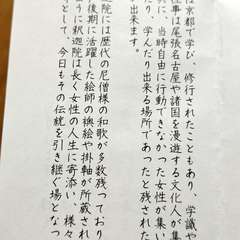 は京都で学び、修行されたこともあり、学識や
仕事は尾張名古屋や諸国を漫遊する文化人が集い
に、当時自由に行動できなかった女性が集い
たり、学んだり出来る場所であったと残された
出来ます。
院には歴代の尼僧様の和歌が多数残っており
後期に活躍した絵師の襖絵や掛軸が所蔵され
うに釈迦院は長く女性の人生に寄添い、様々
として、今日もその伝統を引き継ぐ場となっ